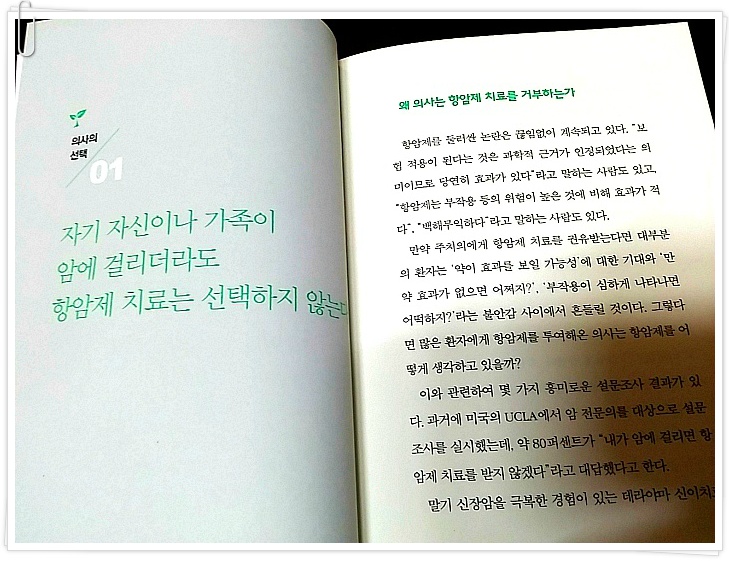 의사의
선택
01
자기 자신이나 가족이
암에 걸리더라도
항암제 치료는 선택하지 않는다
왜 의사는 항암제 치료를 거부하는가
항암제를 둘러싼 논란은 끊임없이 계속되고 있다. “보
험 적용이 된다는 것은 과학적 근거가 인정되었다는 의
미이므로 당연히 효과가 있다”라고 말하는 사람도 있고,
“항암제는 부작용 등의 위험이 높은 것에 비해 효과가 적
다”, “백해무익하다”라고 말하는 사람도 있다.
만약 주치의에게 항암제 치료를 권유받는다면 대부분
의 환자는 ‘약이 효과를 보일 가능성’에 대한 기대와 ‘만
약 효과가 없으면 어쩌지?’, ‘부작용이 심하게 나타나면
어떡하지?’라는 불안감 사이에서 흔들릴 것이다. 그렇다
면 많은 환자에게 항암제를 투여해온 의사는 항암제를 어
떻게 생각하고 있을까?
이와 관련하여 몇 가지 흥미로운 설문조사 결과가 있
다. 과거에 미국의 UCLA에서 암 전문의를 대상으로 설문
조사를 실시했는데, 약 80퍼센트가 “내가 암에 걸리면 항
암제 치료를 받지 않겠다”라고 대답했다고 한다.
말기 신장암을 극복한 경험이 있는 데라야마 신이치